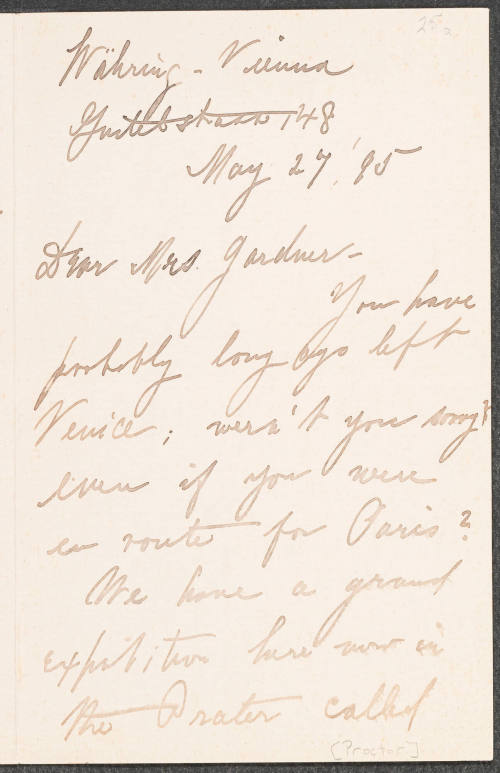 25a
Währing - Vienna
148
May 27, '95
Dear Mrs. Gardner -
You have
probably long ago left
Venice; weren't you sorry?
even if you were
en route for Paris?
We have a grand
exposition here now in
the Prater called
[Proctor]